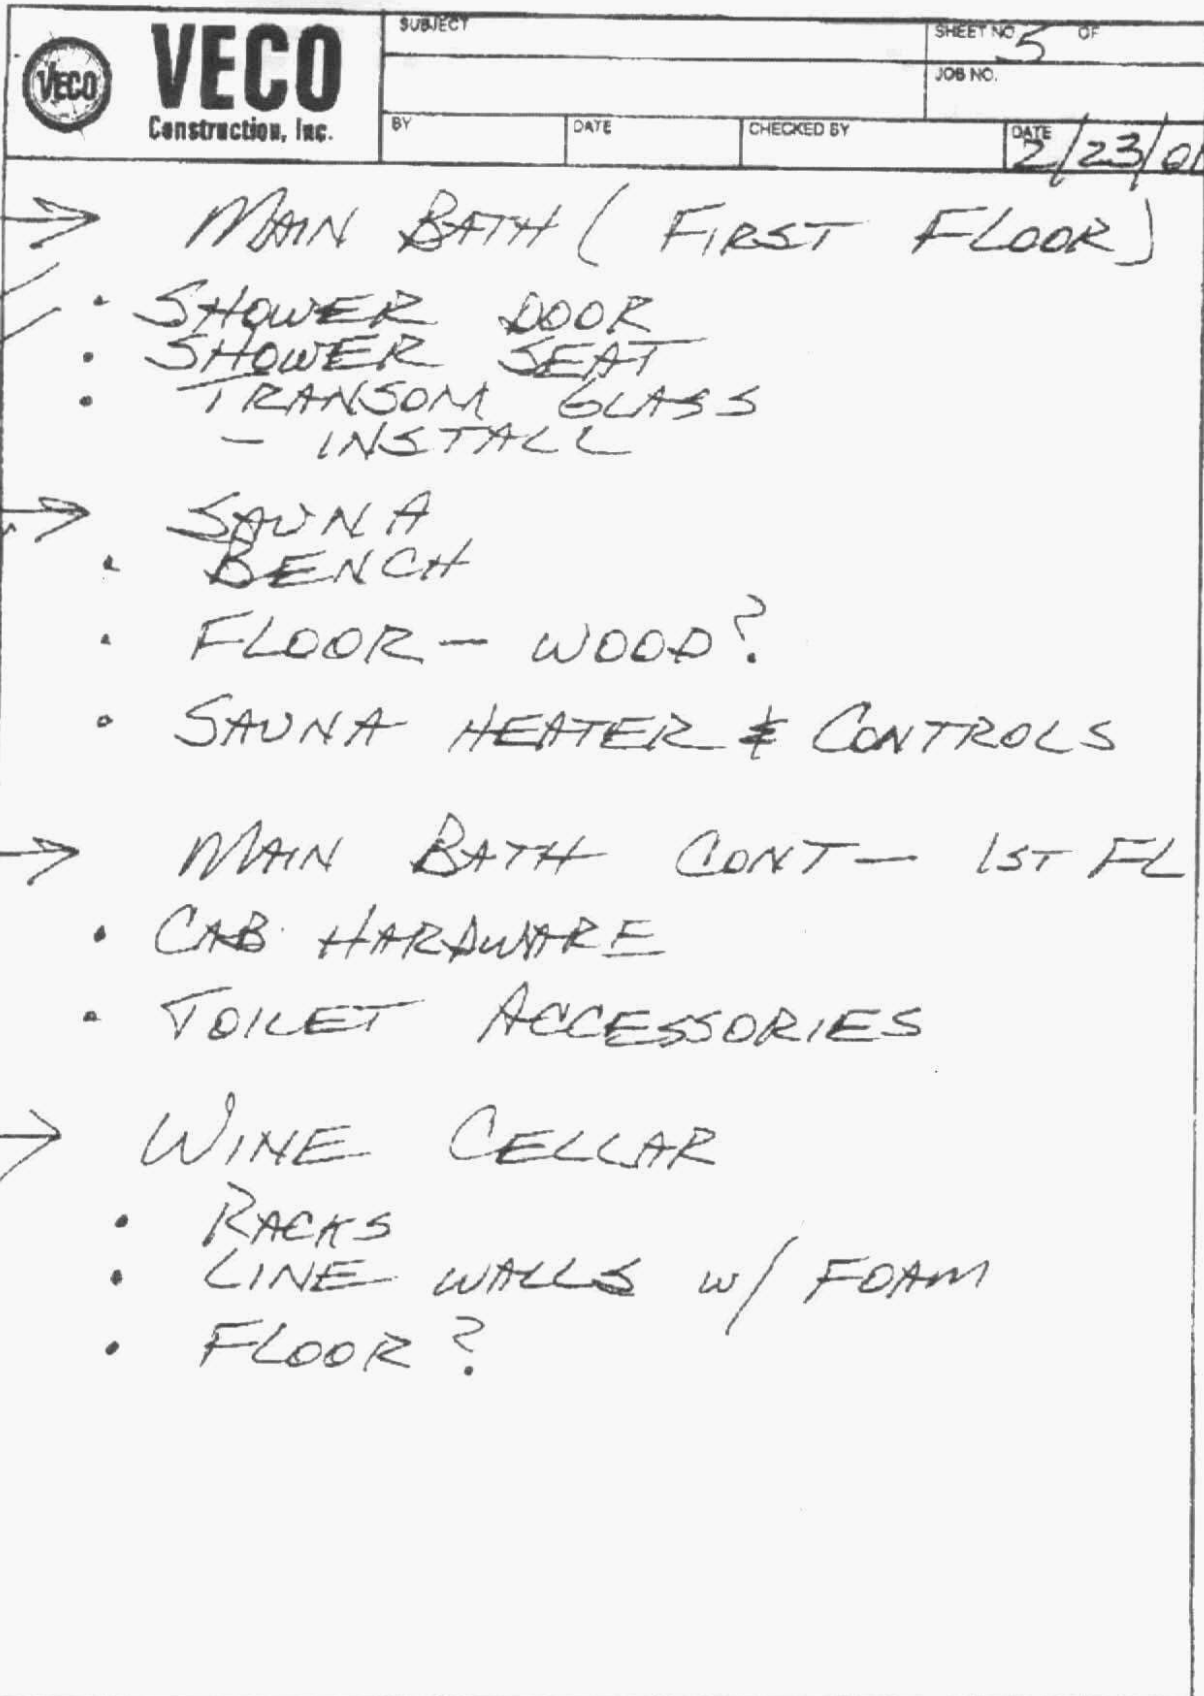 VECO
VECO
Construction, Inc.
SUBJECT
SHEET NO. 5 OF
JOB NO.
BY DATE CHECKED BY DATE
2/23/01
MAIN BATH ( FIRST FLOOR)
• SHOWER DOOR
• SHOWER SEAT
• TRANSOM GLASS
- INSTALL
SAUNA
• BENCH
• FLOOR - WOOD?
• SAUNA HEATER & CONTROLS
MAIN BATH CONT - 1ST FL
• CAB. HARDWARE
• TOILET ACCESSORIES
WINE CELLAR
• RACKS
• LINE WALLS w/ FOAM
• FLOOR?